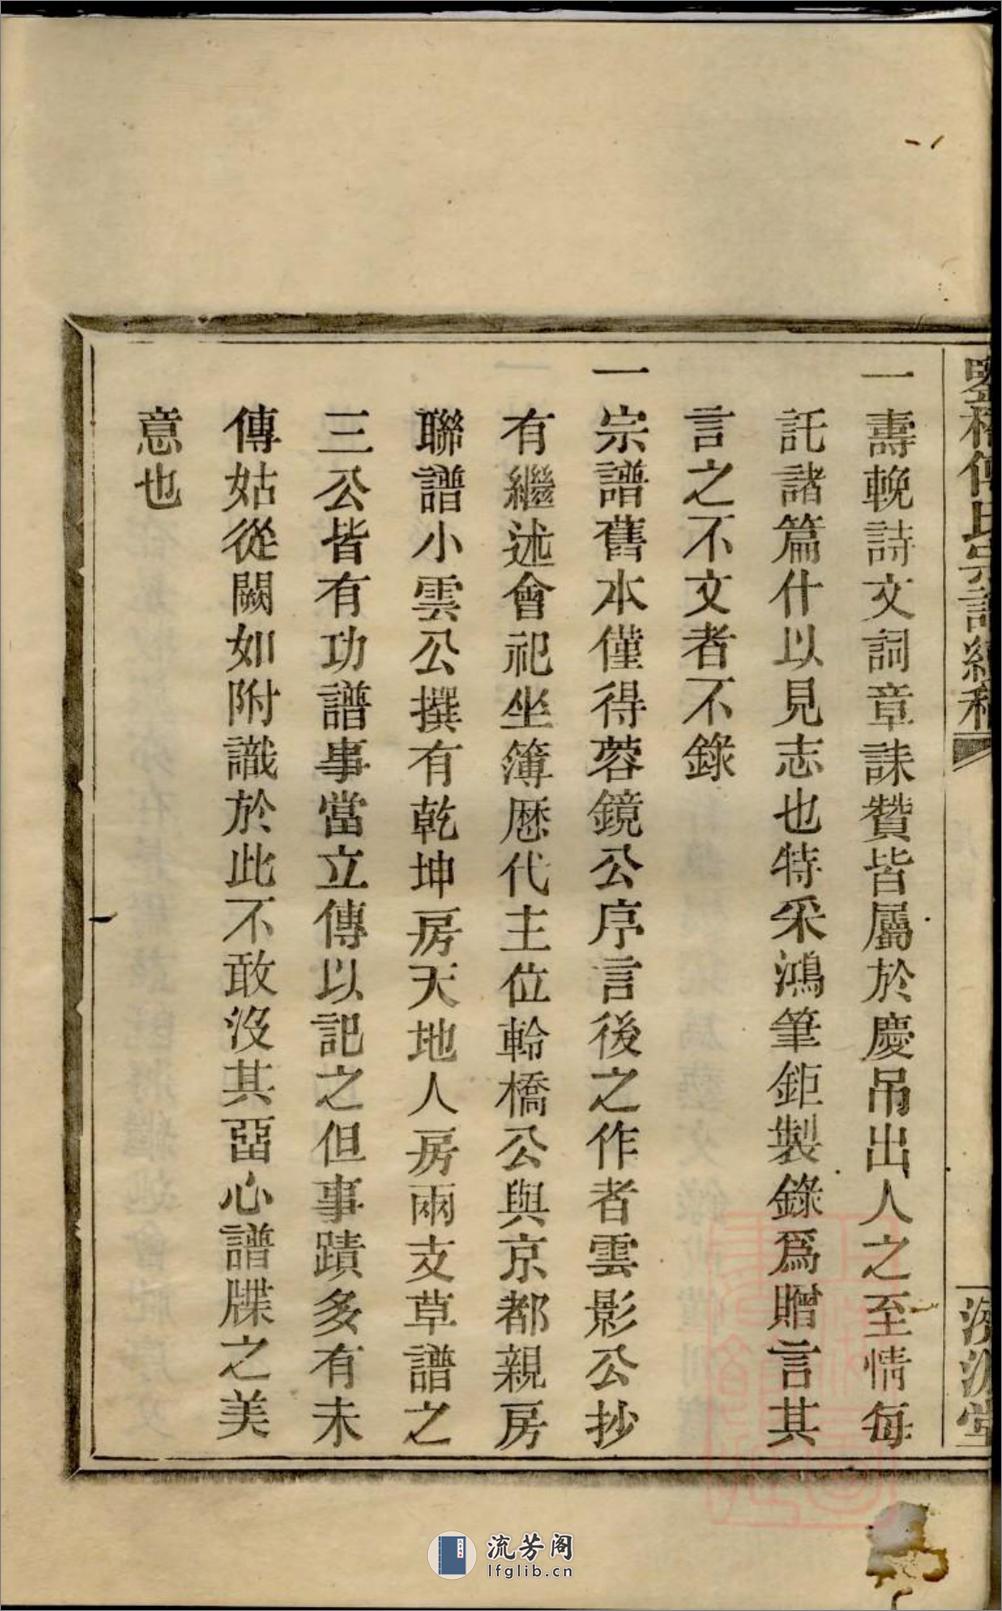 傅氏宗譜
一壽輓詩文詞章誄贊皆屬於慶吊出人之至情每
託諸篇什以見志也特采鴻筆鉅製錄爲贈言其
言之不文者不錄
一宗譜舊本僅得蓉鏡公序言後之作者雲影公抄
有繼述會祀坐簿歷代主位輪橋公與京都親房
聯譜小雲公撰有乾坤房天地人房兩支草譜之
三公皆有功譜事當立傳以記之但事蹟多有未
傳姑從闕如附識於此不敢沒其啚心譜牒之美
意也
流芳阁
lfglib.cn